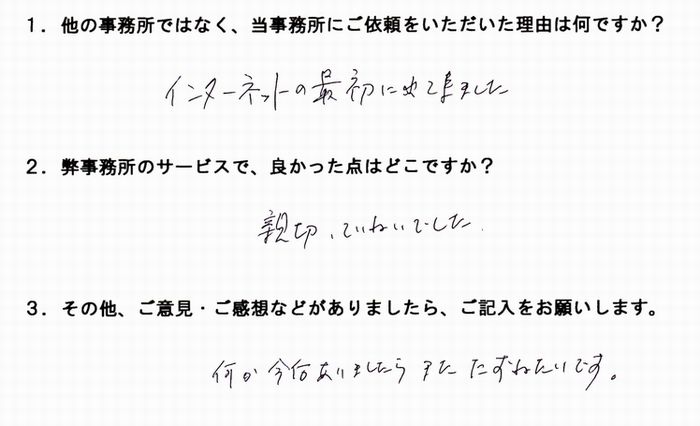 1．他の事務所ではなく、当事務所にご依頼をいただいた理由は何ですか？
インターネットの最初に出てました
2．弊事務所のサービスで、良かった点はどこですか？
親切、ていねいでした。
3．その他、ご意見・ご感想などがありましたら、ご記入をお願いします。
何か今后ありましたらまたたずねたいです。